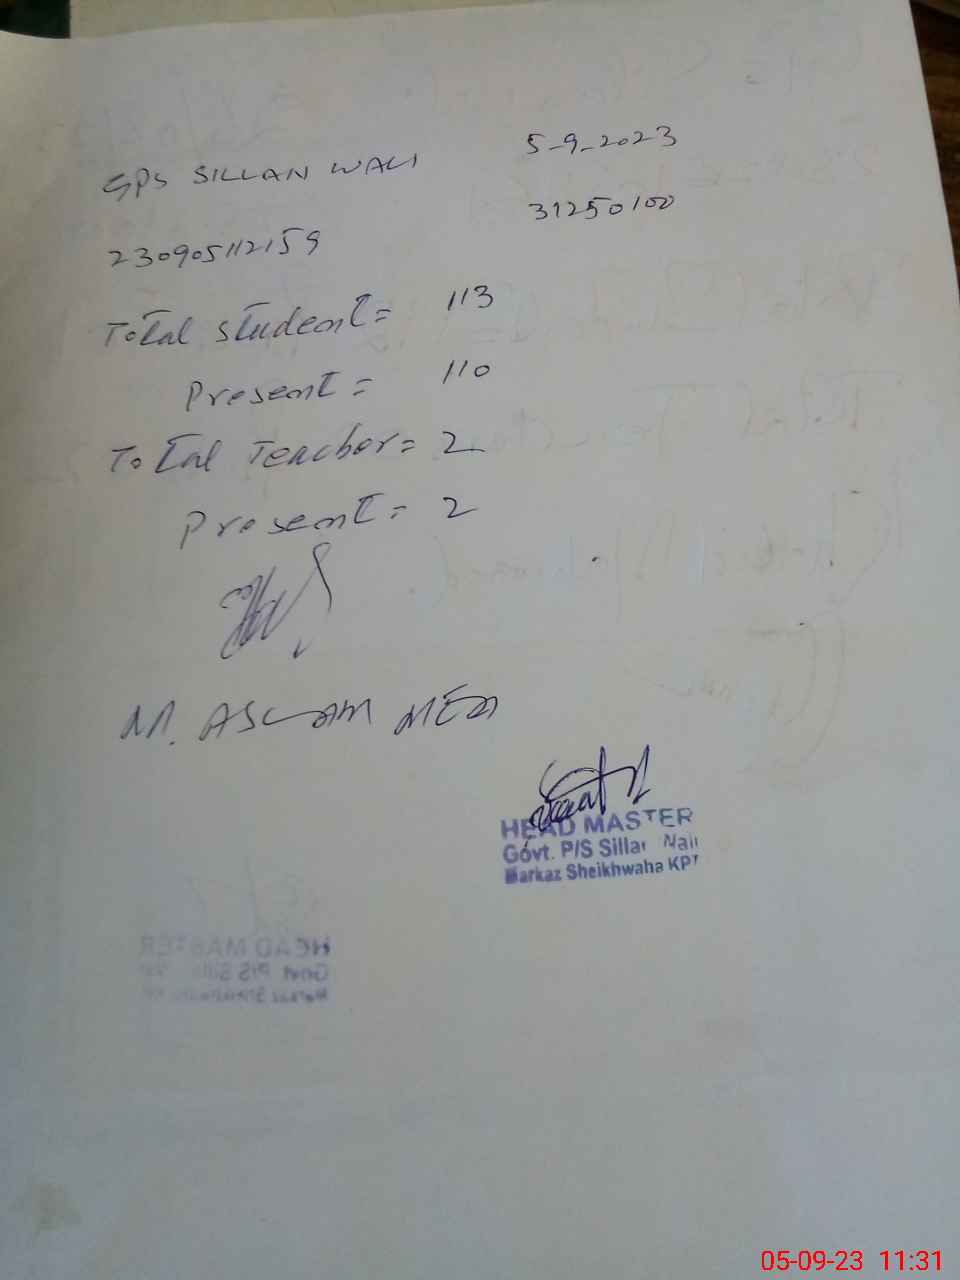 GPS SILLAN WALI 5-9-2023
230905112159 31250100
Total Student = 113
Present = 110
Total Teacher = 2
Present = 2
M. ASLAM MEA
HEAD MASTER
Govt. P/S Sillan
Markaz Sheikhwaha KPT
05-09-23 11:31